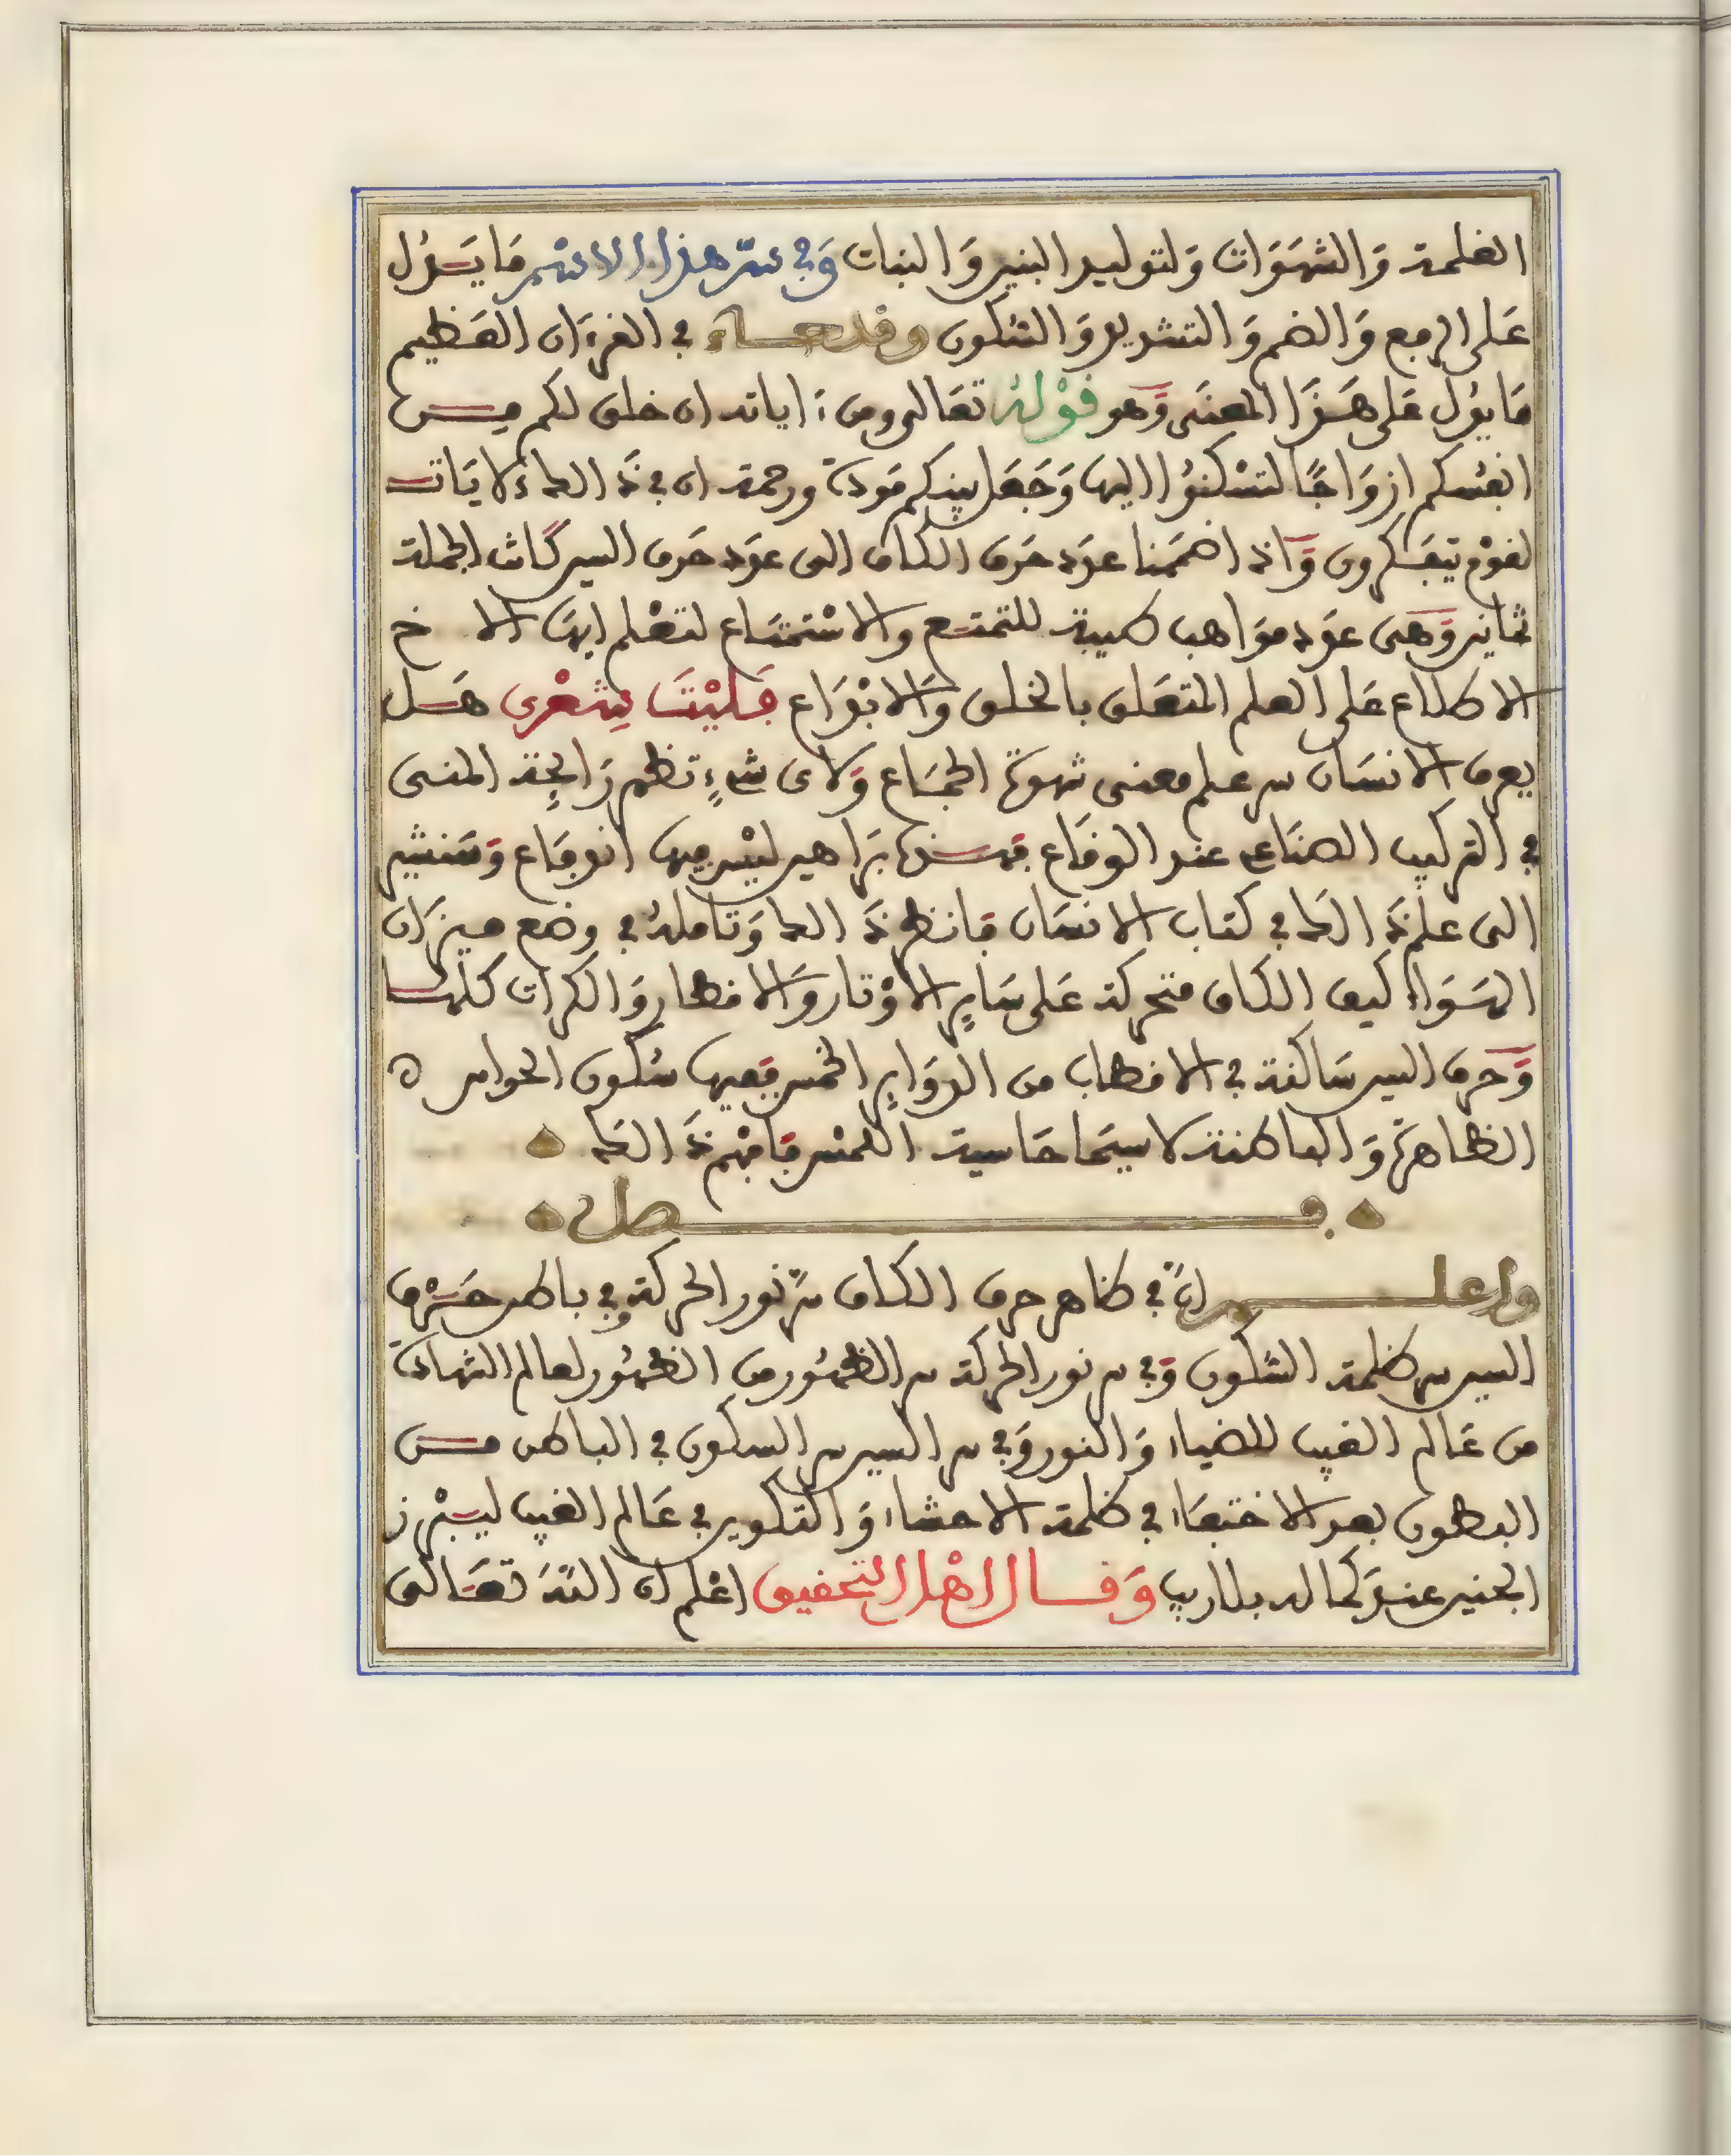 الغلمة وَالشهَوَات وَلتوليد البنين وَالبنات وَفي سرّ هذا الاسْم مَا يَدُل
عَلى الرفع وَالضم وَالتشديد وَالسكون وقد جاء في القرءان العَظيم
مَا يدُل عَلى هَذَا المعنَى وَهو قوْلهُ تعَالى ومن ءاياته ان خلق لكم من
انفسكم ازوَاجًا لتسْكنوُا اليها وَجَعَل بينكم مَودة ورحمة ان في ذَالك لايَات
لقوْم يتفَكرون وَاذا اضفنا عدَد حَرف الكاف الى عدَد حَرف السين كَانت الجملة
ثمانين وَهى عدَد موَاهب طيبة للتمتع والاسْتمتَاع لتعْلم ايهَا الاخ
الاطلاع عَلى العلم المتعَلق بالخلق وَالابْدَاع فَليْتَ شِعْرى هَل
يعرف الانسَان سر علم معنى شهوة الجمَاع وَلاى شىءٍ تظهر رَائِحة المنى
في التركيب الصنَاعى عند الوقَاع فهذه برَاهين ليْس فيها اندفَاع وَسَنشير
الى علم ذَالك في كتاب الانسَان فَانظر ذَالك وَتاملهُ في وضع ميزَان
السَوَاء كيف الكاف متحركة عَلى سَايِر الاوْتار وَالاقطار وَالكرات كلها
وَحرف السين سَاكنة في الاقطاب من الدوَايِر الخمس فَفيها سُكون الحواس
الظاهرَة وَالباطنة لاسيمَا حَاسية اللمْس فَافهْم ذَالك
فصل
واعلم انَّ في ظاهر حرف الكاف سرّ نور الحركة وفي باطن حَرْف
السين سر ظلمة السُكون وَفي سر نور الحركة سر الظهُور من الظهُور لعالم الشهادَة
من عَالم الغيب للضياء وَالنور وَفي سر السين سر السكون في الباطن من
البطون بعد الاختفَاء في ظلمة الاحشاء وَالتكوين في عَالم الغيب ليبْرز
الجنين عندَ كماله بلا ريب وَقال اهْل التحقيق اعْلم ان اللهَ تعَالى